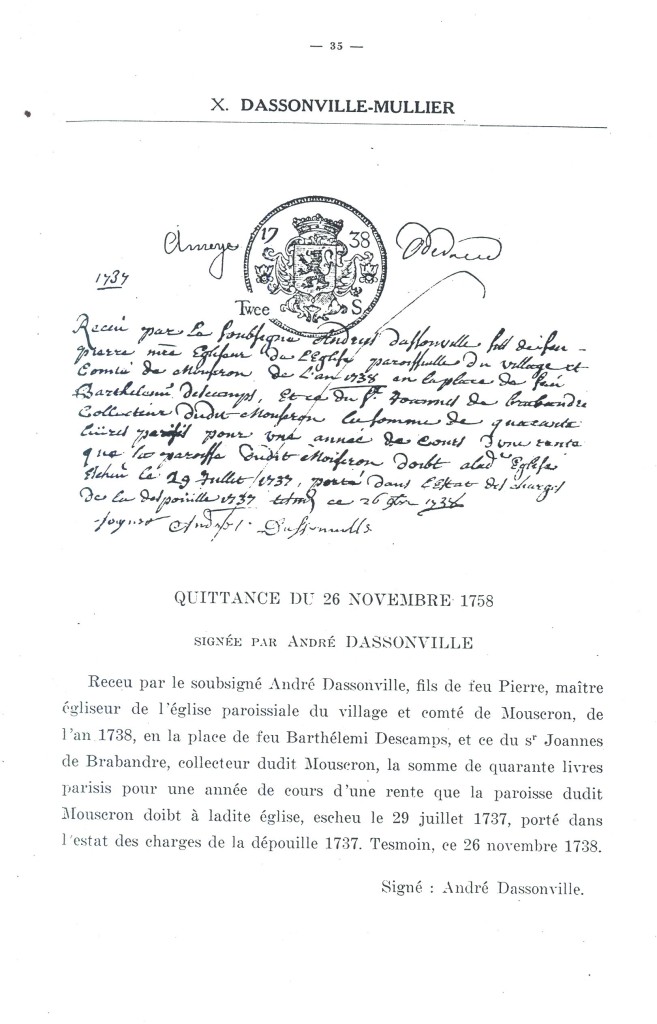 — 35 —
X. DASSONVILLE-MULLIER
17 38
Twee S.
1737
Receu par Le soubsigne Andries dassonville fils de feu -
pierre mre Egliseur de L'Eglise paroissialle du village et
Comté de Mousron de L'an 1738 en la place de feu
Barthelemi descamps, et ce du sr. Joannes de brabandre
Collecteur dudit Mousron la somme de quarante
livres parisis pour une année de Cours d'une rente
que la paroisse dudit Mousron doibt alad. Eglise
Escheu le 29 Juillet 1737, porté dans L'Estat des charges
de la despoüille 1737 ce 26 9bre 1738
Andries Dassonville
QUITTANCE DU 26 NOVEMBRE 1758
SIGNÉE PAR ANDRÉ DASSONVILLE
Receu par le soubsigné André Dassonville, fils de feu Pierre, maître
égliseur de l'église paroissiale du village et comté de Mouscron, de
l'an 1738, en la place de feu Barthélemi Descamps, et ce du sr Joannes
de Brabandre, collecteur dudit Mouscron, la somme de quarante livres
parisis pour une année de cours d'une rente que la paroisse dudit
Mouscron doibt à ladite église, escheu le 29 juillet 1737, porté dans
l'estat des charges de la dépouille 1737. Tesmoin, ce 26 novembre 1738.
Signé : André Dassonville.